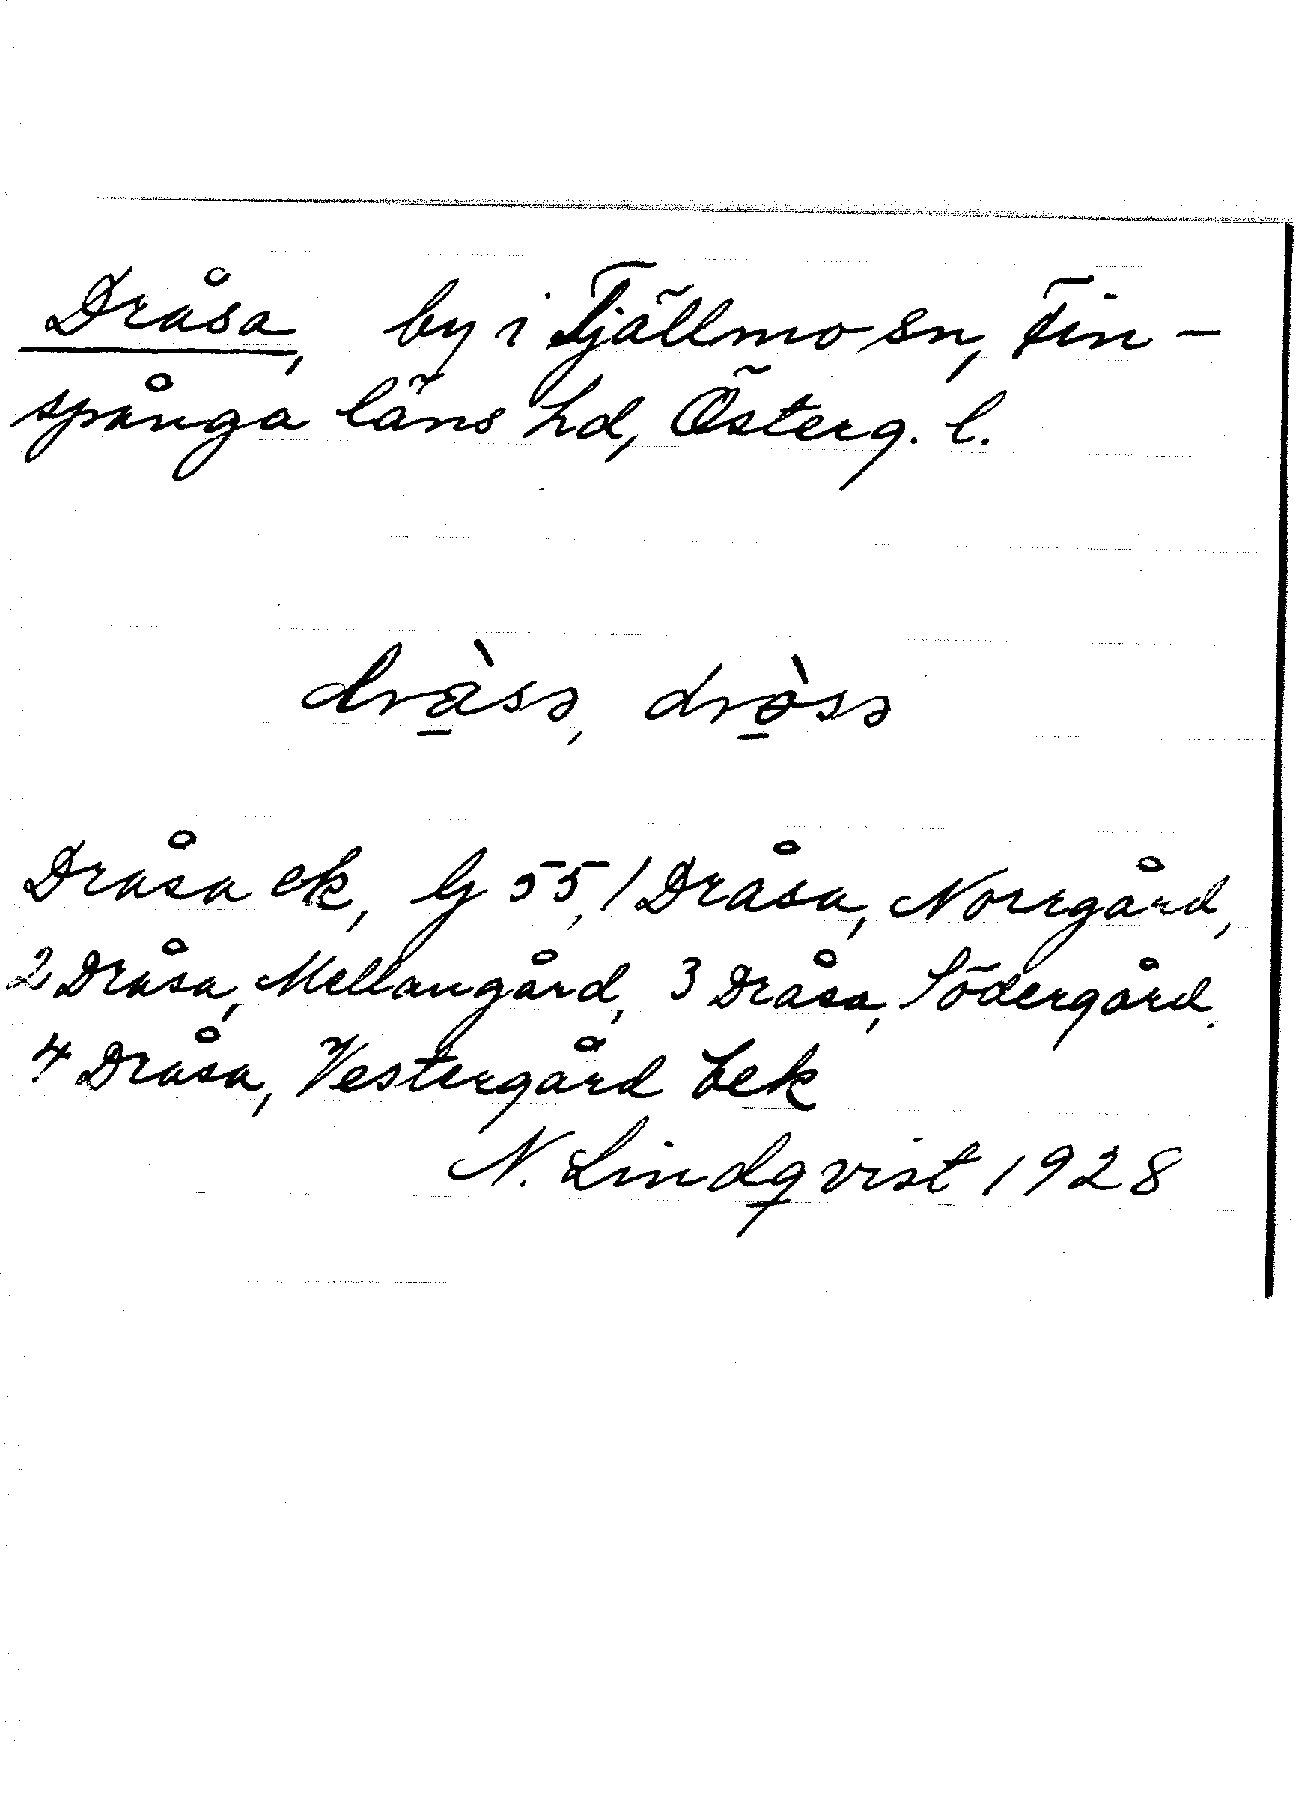 Dråsa, by i Tjällmo sn, Fin-
spånga läns hd, Österg. l.
drå̀sə, drò̱sə
Dråsa ek, G 55, 1 Dråsa, Norrgård,
2 Dråsa, Mellangård, 3 Dråsa, Södergård,
4 Dråsa, Vestergård bek
N. Lindqvist 1928